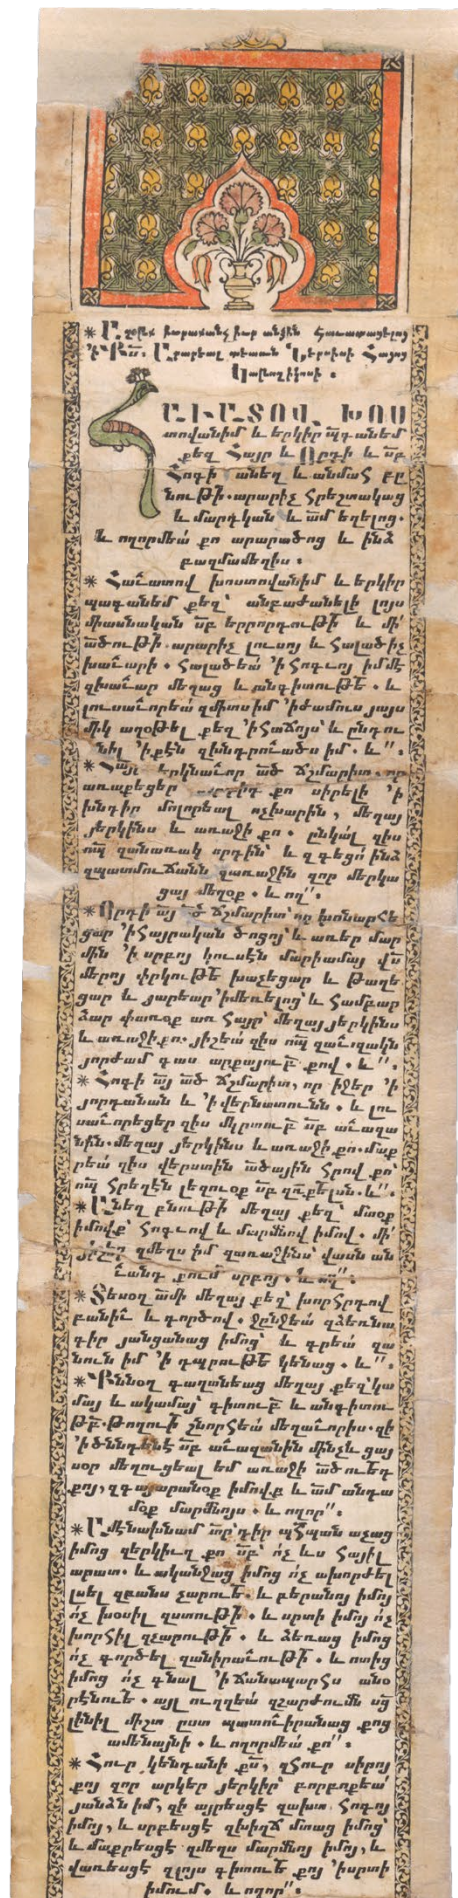 * Աղօթք իւրաքանչիւր անձին հաւատացելոց
'ի Քս՟. Արարեալ տեառն Ներսիսի Հայոց
Կաթողիկոսի ։
ՀԱՒԱՏՈՎ ԽՈՍ
տովանիմ և երկիր պ՟գանեմ
քեզ Հայր և Որդի և ս՟բ
Հոգի անեղ և անմահ բը
նութի՟. արարիչ հրեշտակաց
և մարդկան և ա՟մ եղելոց.
և ողորմեա՛ քո արարածոց և ինձ
բազմամեղիս ։
* Հաւատով խոստովանիմ և երկիր
պագանեմ քեզ՝ անբաժանելի լոյս
միասնական ս՟բ երրորդութի՟ և մի՛
ա՟ծութի՟. արարիչ լուսոյ և հալածիչ
խաւարի. հալածեա՛ 'ի հոգւոյ իմմէ
զխաւար մեղաց և անգիտութե՟. և
լուսաւորեա՛ զմիտս իմ 'իժամուս յայս
միկ աղօթել քեզ 'ի հաճոյս՝ և ընդու
նիլ 'ի քէն զխնդրուածս իմ. և ՛՛.
* Հայր երկնաւոր ա՟ծ ճշմարիտ. որ
առաքեցեր զորդիդ քո սիրելի 'ի
խնդիր մոլորեալ ոչխարին, մեղայ
յերկինս և առաջի քո. ընկա՛լ զիս
ո՟պ զանառակ որդին՝ և զգեցո՛ ինձ
զպատմուճանն զառաջին զոր մերկա
ցայ մեղօք. և ող՛՛։
* Որդի ա՟յ ա՟ծ ճշմարիտ՝ որ խոնարհե
ցար 'ի հայրական ծոցոյ՝ և առեր մար
մին 'ի սրբոյ կուսէն մարիամայ վ՟ս
մերոյ փրկութե՟ խաչեցար և թաղե
ցար և յարեար 'իմեռելոց՝ և համբար
ձար փառօք առ հայր՝ մեղայ յերկինս
և առաջի քո. յիշեա՛ զիս ո՟պ զաւազակն
յորժամ գաս արքայութ՟բ քով. և ՛՛.
* Հոգի ա՟յ ա՟ծ ճշմարիտ, որ իջեր 'ի
յորդանան և 'ի վերնատունն. և լու
սաւորեցեր զիս մկրտութ՟բ ս՟բ աւազա
նին. մեղայ յերկինս և առաջի քո. մաք
րեա՛ զիս վերստին ա՟ծային հրով քո՝
ո՟պ հրեղէն լեզուօք ս՟բ զա՟քելսն. և ՛՛.
* Անեղ բնութի՟ մեղայ քեզ՝ մտօք
իմովք՝ հոգւով և մարմնով իմով. մի՛
յիշեր զմեղս իմ զառաջինս՝ վասն ան
ւանդ քում սրբոյ. և ող՛՛.
* Տեսօղ ա՟մի մեղայ քեզ՝ խորհրդով
բանիւ և գործով. ջընջեա՛ զձեռնա
գիր յանցանաց իմոց՝ և գրեա՛ զա
նուն իմ 'ի դպրութե՟ կենաց. և ՛՛.
* Քննօղ գաղտնեաց մեղայ քեզ՝ կա
մայ և ակամայ՝ գիտութ՟բ և անգիտու
թ՟բ. թողութի՟ շնորհեա՛ մեղաւորիս. զի
'ի ծննդենէ ս՟բ աւազանին մինչև ցայ
սօր մեղուցեալ եմ առաջի ա՟ծութեդ
քոյ, զգայարանօք իմովք և ա՟մ անդա
մօք մարմնոյս. և ողոր՛՛։
* Ամենախնամ տր՟ դիր պհպան աչաց
իմոց զերկիւղ քո ս՟բ՝ ոչ ևս հայիլ
արատ. և ականջաց իմոց ոչ ախորժել
լսել զբանս չարութե՟. և բերանոյ իմոյ
ոչ խօսիլ զստութի՟. և սրտի իմոյ ոչ
խորհիլ զչարութի՟. և ձեռաց իմոց
ոչ գործել զանիրաւութի՟. և ոտից
իմոց ոչ գնալ 'ի ճանապարհս անօ
րէնութե՟. այլ ուղղեա՛ զշարժումն սց՟
լինիլ միշտ ըստ պատուիրանաց քոց
ամենայնի. և ողորմեա՛ քո՛՛։
* Հուր կենդանի քս՟, զհուր սիրոյ
քոյ զոր արկեր յերկիր՝ բորբոքեա՛
յանձն իմ, զի այրեսցէ զախտ հոգոյ
իմոյ, և սրբեսցէ զխիղճ մտաց իմոց՝
և մաքրեսցէ զմեղս մարմնոյ իմոյ, և
վառեսցէ զլոյս գիտութե՟ քոյ 'իսրտի
իմում. և ողոր՛՛։